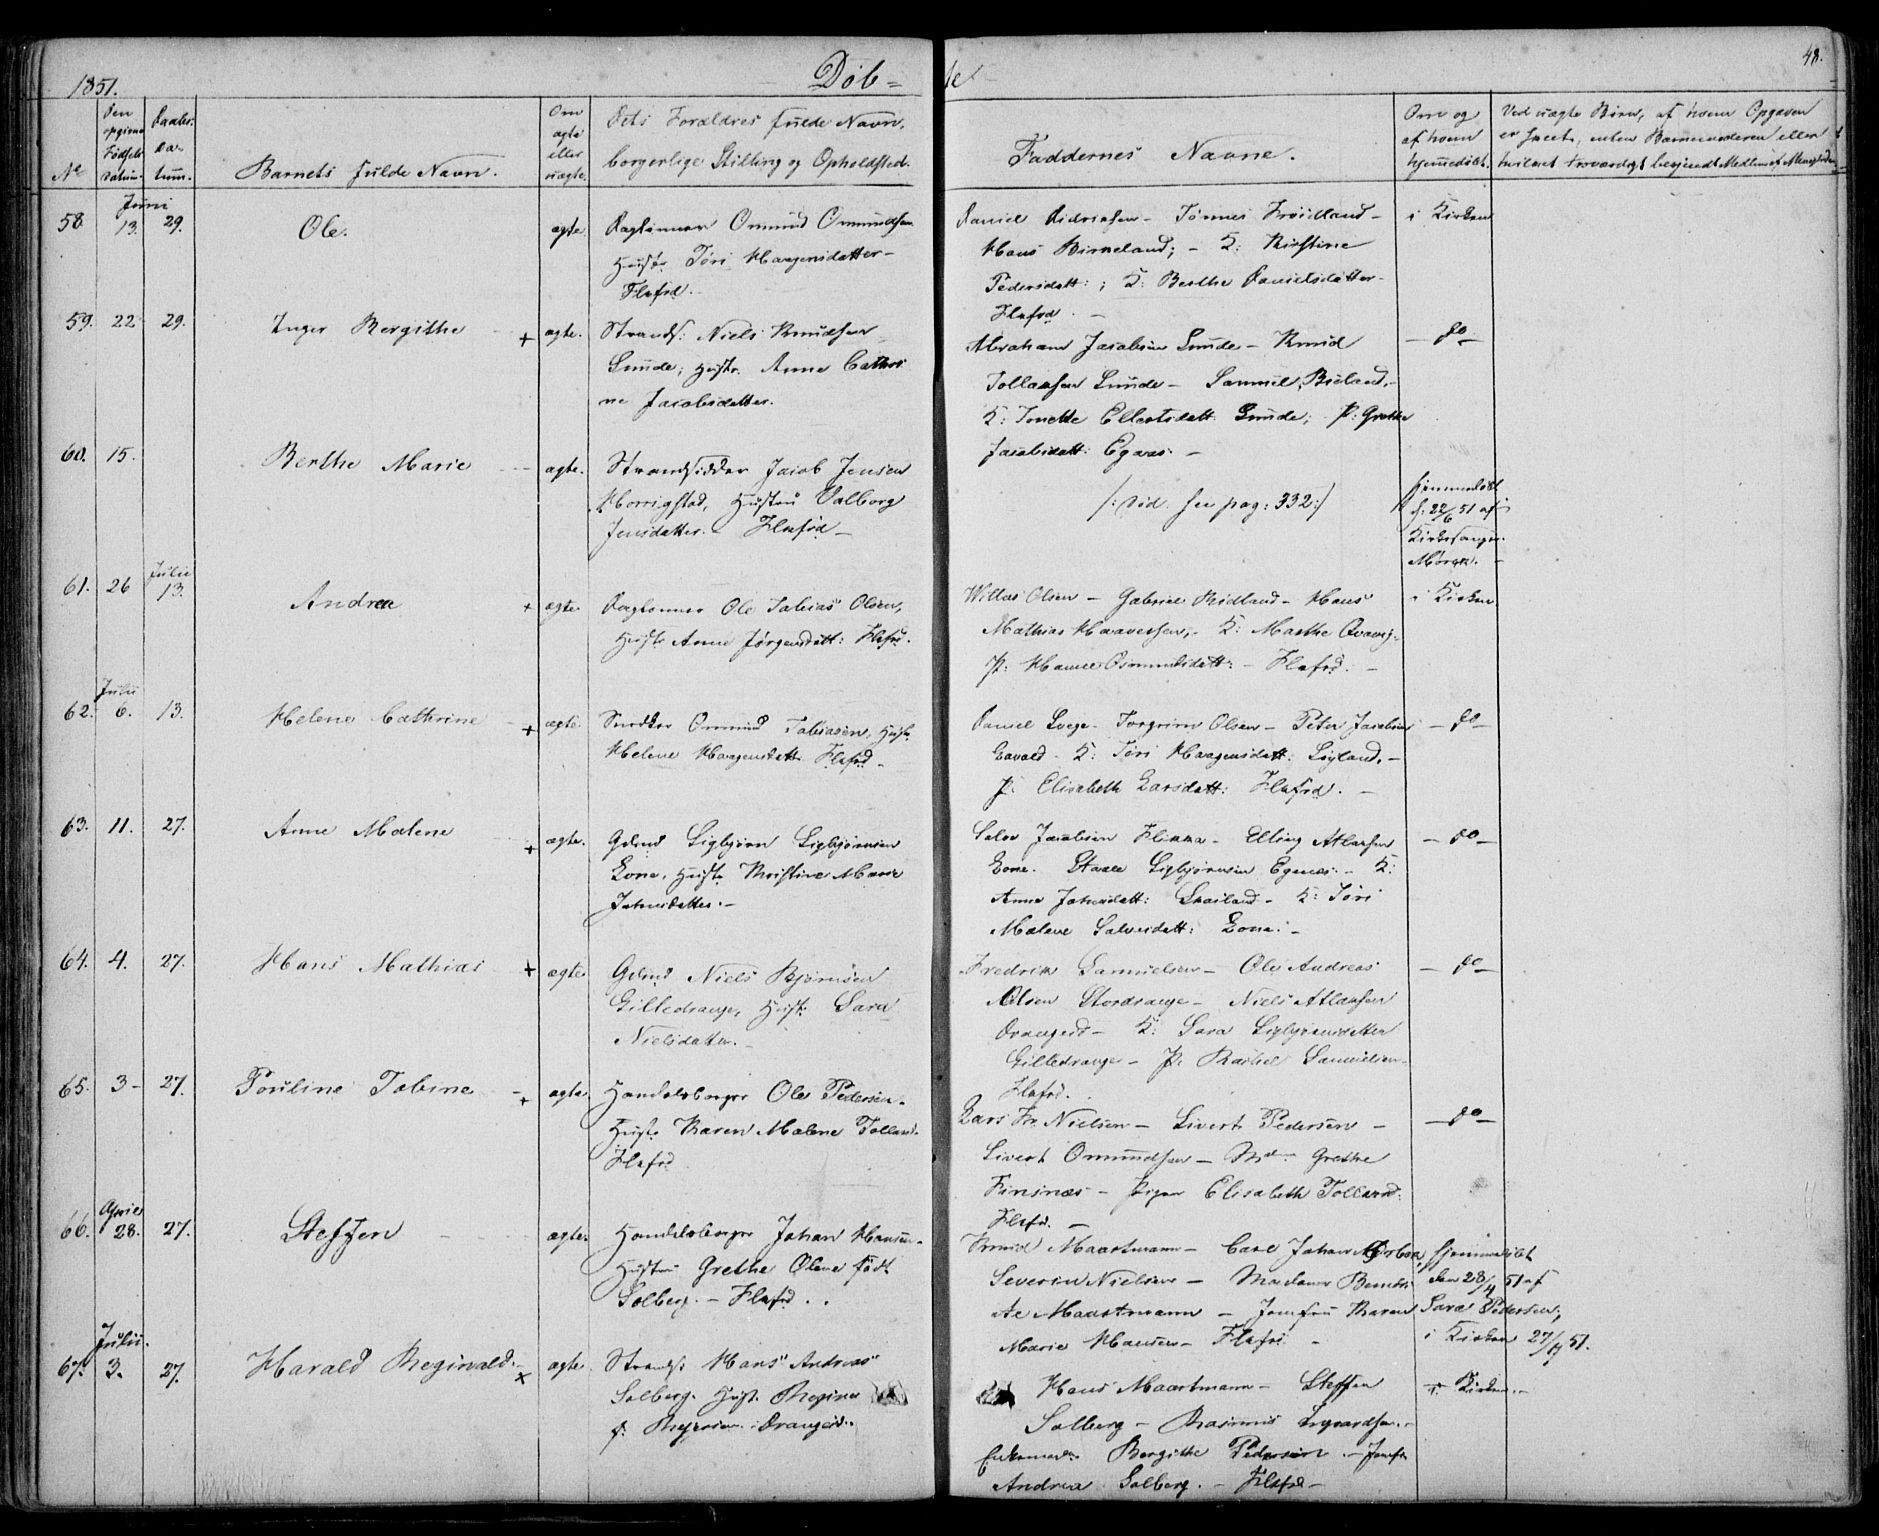 1851.
Døb=
te
48.
No
Den opgivne Fødsels datum.
Daabsdatum.
Barnets fulde Navn.
Om ægte eller uægte.
Dets Forældres fulde Navn, borgerlige Stilling og Opholdsted.
Faddernes Navne.
Om og af hvem hjemmedøbt.
Ved uægte Børn, af hvem Opgaven
er skeet, enten Barnemoderen eller
Juni
58. 13. 29. Ole. ægte.
Daglønner Omund Omundsen
Hustr. Tøri Haagensdatter-
Flsfrd.
Daniel Didriksen - Tønnes Frøidland -
Hans Birkeland; - K: Kirstine
Pedersdatt: ; K: Berthe Danielsdatter-
Flsfrd. -
i Kirken
59. 22 29. Inger Bergithe + ægte.
Strands: Niels Knudsen
Sunde; Hustr. Anne Cathri
ne Jacobsdatter.
Abraham Jacobsen Sunde - Knud
Tollaksen Sunde - Samuel Bieland. -
K: Tonette Ellertsdatt: Sunde; P: Grethe
Jacobsdatt: Egaas. -
- do -
60. 15. Berthe Marie - ægte.
Strandsidder Jacob Jensen
Horrigstad, Hustru Valborg
Jensdatter. Flsfrd -
/: vid. see pag: 332:/
hjemmedøbt
d: 22/6 51 af
Kirkesanger
61. 26 Julii 13. Andrea + ægte
Daglønner Ole Tobias Olsen,
Hustr Anne Jørgensdatt: Flsfrd.
Willas Olsen - Gabriel Ridland - Hans
Mathias Haaversen, - K: Marthe
P: Hanne Osmundsdatt: - Flsfrd. -
i Kirken.
Julii
62. 6. 13. Helene Cathrine + ægte
Snedker Ommund Tobiasen, Hustr.
Helene Haagensdatt: Flsfrd -
Daniel Loge - Torgrim Olsen - Peter Jacobsen
Lavold - K: Tøri Haagensdatt: Løyland, -
P: Elisabeth Larsdatt: Flsfrd. -
- do -
63. 11. 27. Anne Malene + ægte.
Gdmd Sigbjørn Sigbjørnsen
Lone, Hustr. Kristine Marie
Johnsdatter. -
Salve Jacobsen Flikka - Elling Atlaksen
Lone. Staale Sigbjørnsen Egenes. - K:
Anne Johnsdatt: Skailand - K: Tøri
Malene Salvesdatt: Lone. -
- do -
64. 4. 27. Hans Mathias + ægte.
Gdmd Niels Bjørnsen
Gilledrange, Hustr. Sara
Nielsdatter. -
Fredrik Samuelsen - Ole Andreas
Olsen Stordrange - Niels Atlaksen
Drangeid - K: Sara Sigbjørnsdatter
Gilledrange - P: Rachel Samuelsen -
Flsfrd.
- do -
65. 3 - 27. Pouline Tobine + ægte.
Handelsborger Ole Pedersen -
Hustr. Karen Malene Tolland.
Flsfrd
Lars Fr. Nielsen - Sivert Pedersen -
Sivert Omundsen - Md. Grethe
Finsnæs - Pigen Elisabeth Tolland.
Flsfrd. -
- do -
April
66. 28. 27. Steffen ægte.
Handelsborger Johan Hansen -
Hustru Grethe Olene født
Solberg. - Flsfrd. .
Knud Maartmann - Carl Johan
Severin Nielsen - Madame Benedic
te Maartmann - Jomfru Karen
Marie Hansen - Flsfrd -
hjemmedøbt
den 28/4 51 af
Sara Pedersen;
i Kirken 27/7 51.
Julii.
67. 3. 27. Harald Reginald. x ægte.
Strands: Hans Andreas
Solberg. Hustr. Regine
f. Drangeid.
Hans Maartmann - Steffen
Solberg - Rasmus Sigvardsen. -
Bergithe Pedersen - Jomfr.
Andrea Solberg. - Flsfrd -
i Kirken. -